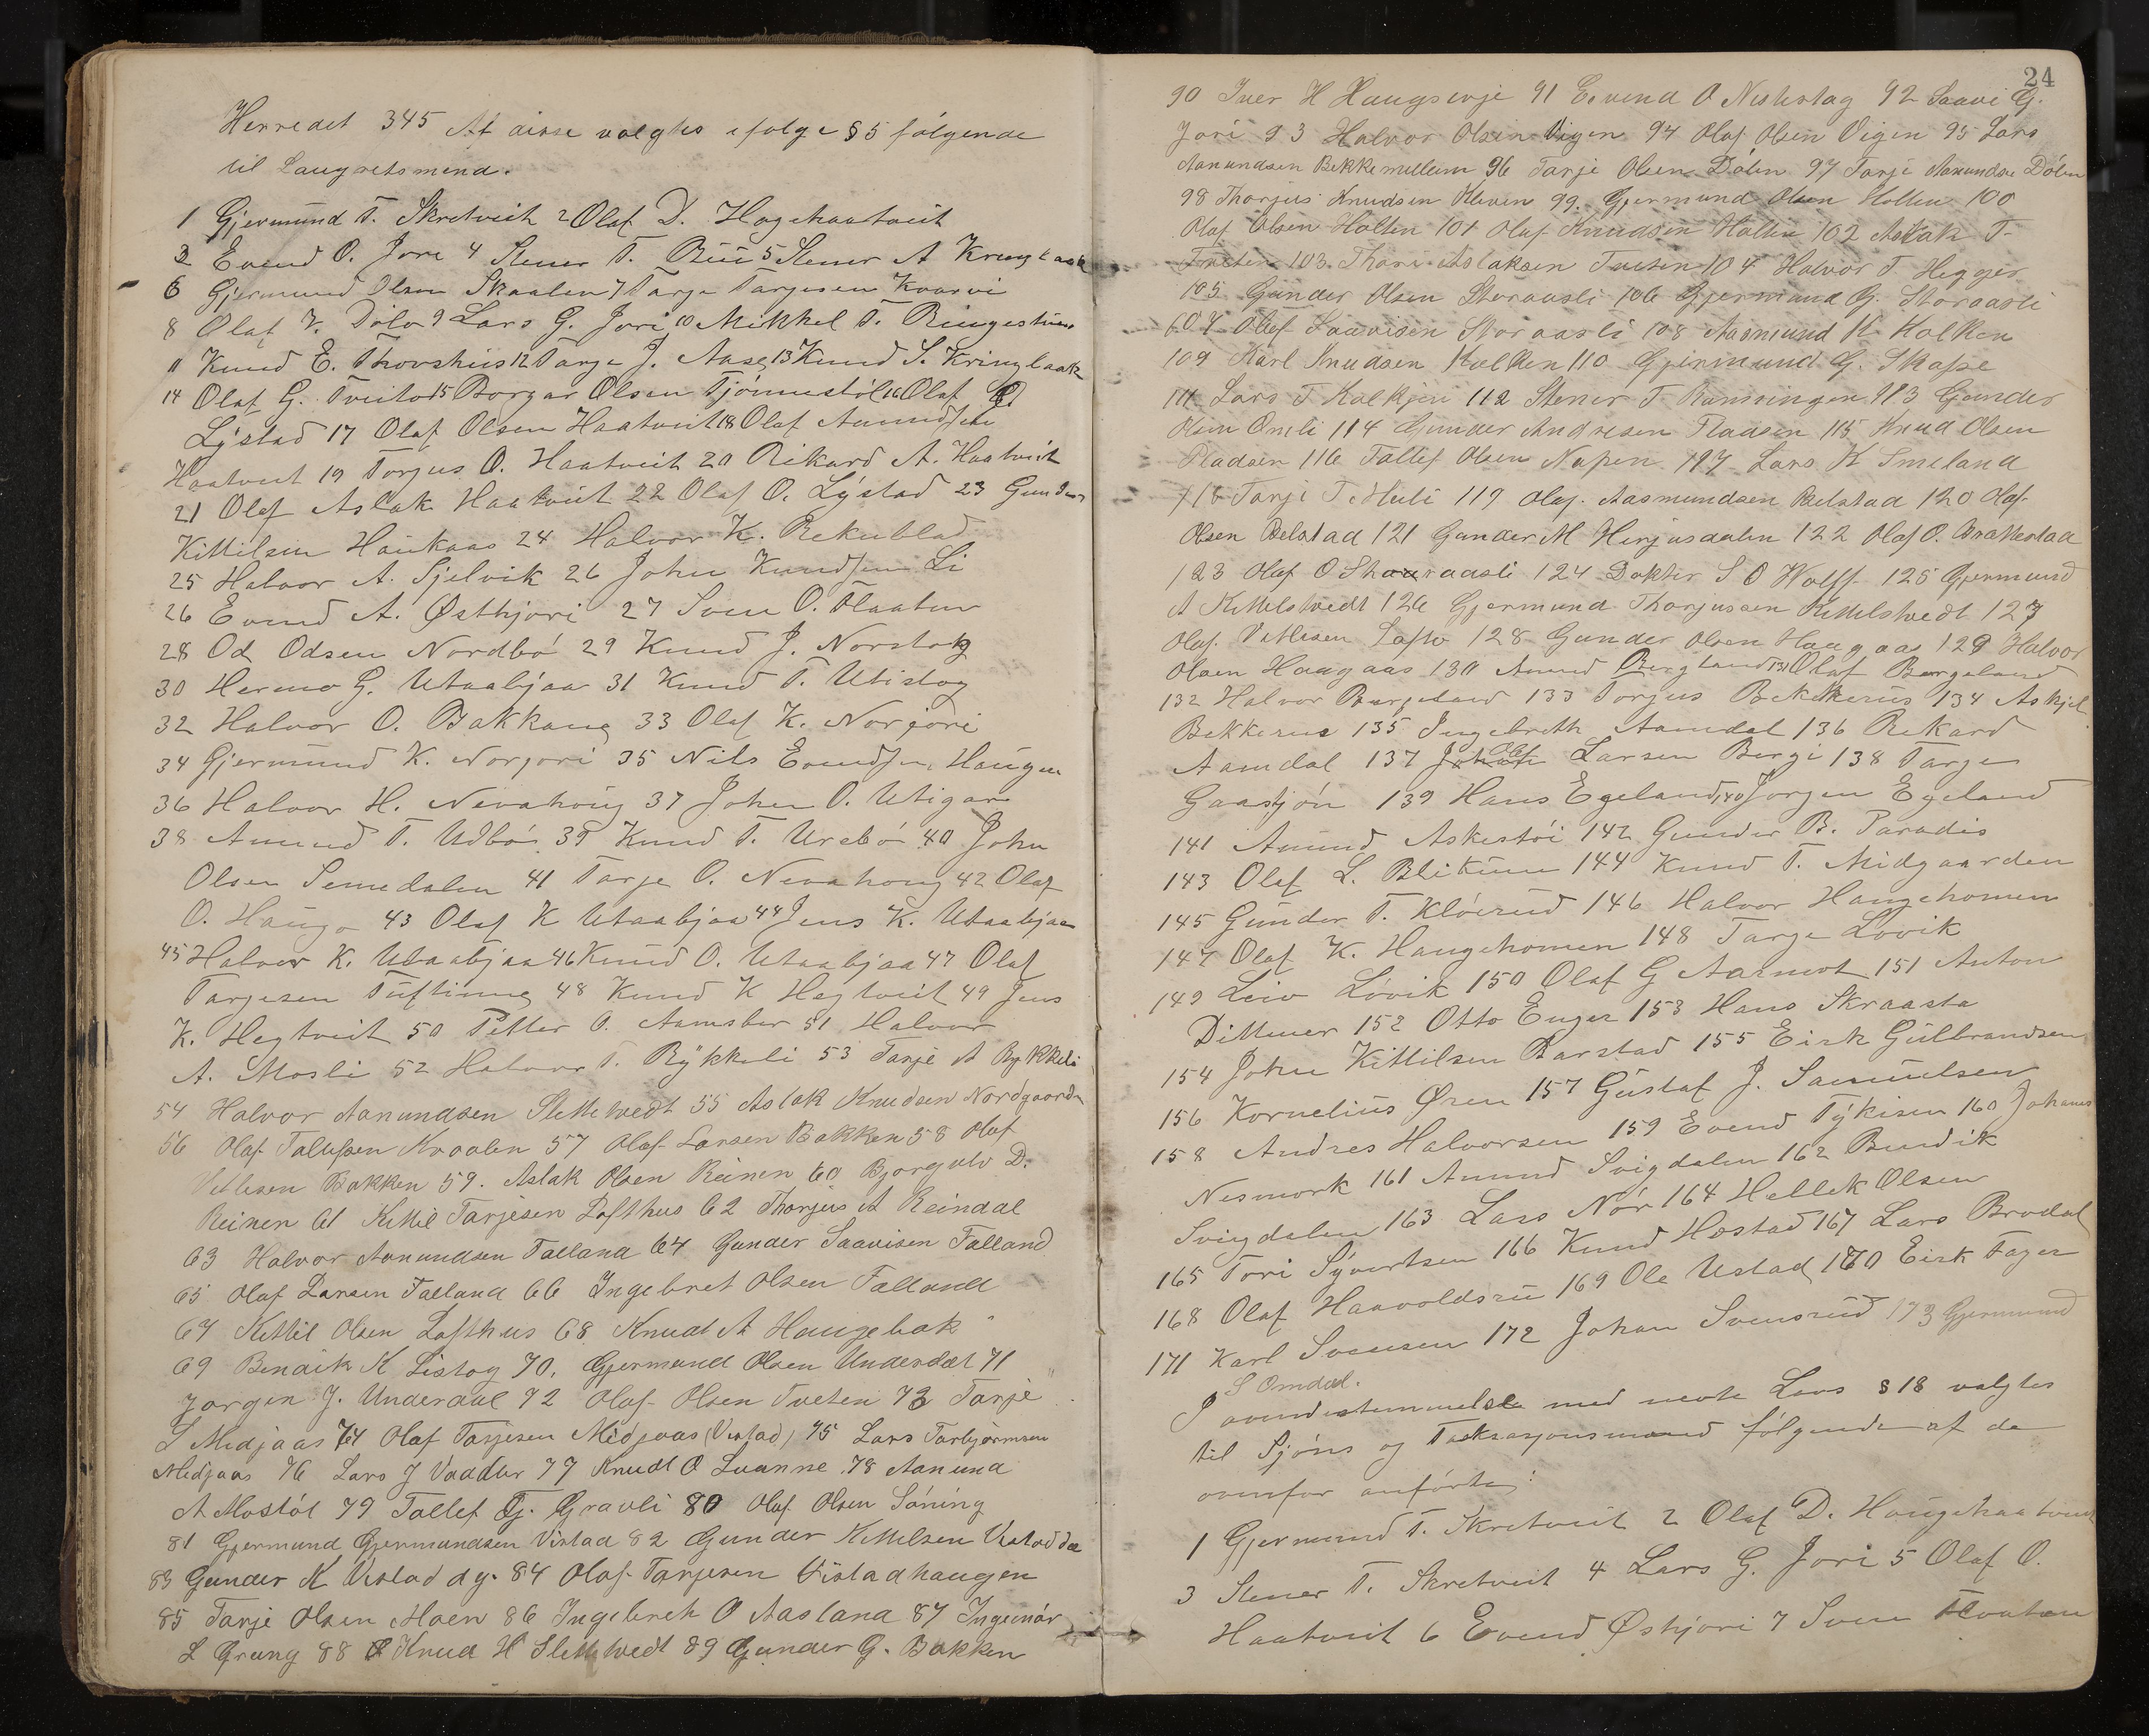 Herredet 345 Af disse valgtes ifølge § 5 følgende
til Laugretsmend.
1 Gjermund T. Skretveit 2 Olaf D. Hogehaatveit
3 Evend O. Jore 4 Stener T. Bii 5 Stener A Kringlaak
6 Gjermund Olsen Skaalen 7 Tarje Tarjesen Kvarvi
8 Olaf K. Dölo 9 Lars G. Jori 10 Mikkel T. Ringestuen
11 Knud E. Thorshus 12 Tarje J. Aase 13 Knud S. Kringlaak
14 Olaf G. Tveito 15 Borgar Olsen Tjönnestöl 16 Olaf O
Lystad 17 Olaf Olsen Haatveit 18 Olaf Aamundsen
Haatveit 19 Torgus O. Haatveit 20 Rikard A. Haatveit
21 Olaf Aslak Haatveit 22 Olaf O. Lystad 23 Gunder
Kittilsen Haukaas 24 Halvor K. Rekeblad
25 Halvor A. Sjelvik 26 John Knudsen Li
26 Evend A. Østhjori 27 Sven O. Flaaten
28 Od Odsen Nordbö 29 Knud J. Norstog
30 Hermo G. Utaabjaa 31 Knud T. Utistog
32 Halvor O. Bakkane 33 Olaf K. Norjori
34 Gjermund K. Norjori 35 Nils Evendsen Haugen
36 Halvor H. Nevahoug 37 John O. Utigar
38 Amund T. Udbö 39 Knud T. Urebö 40 John
Olsen Semedalen 41 Tarje O. Nevahoug 42 Olaf
O. Haugo 43 Olaf K Utaabjaa 44 Jens K. Utaabjaa
45 Halvor K. Utaabjaa 46 Knud O. Utaabjaa 47 Olaf
Tarjesen Tufting 48 Knud K Hegtveit 49 Jens
K. Hegtveit 50 Petter O. Aamsber 51 Halvor
A. Mosli 52 Halvor T. Rykkeli 53 Tarje A Rykkeli
54 Halvor Aanundsen Slettetvedt 55 Aslak Knudsen Nordgaarden
56 Olaf Tallefsen Kraalen 57 Olaf Larsen Bakken 58 Olaf
Vetlesen Bakken 59. Aslak Olsen Reinen 60 Bjorgulv D.
Reinen 61 Kittil Tarjesen Lofthus 62 Thorjus A Reindal
63 Halvor Aanundsen Falland 64 Gunder Saavisen Falland
65 Olaf Larsen Falland 66 Ingebret Olsen Falland
67 Kittil Olsen Lofthus 68 Knudt A Haugebak
69 Bendik K Listog 70. Gjermund Olsen Underdal 71
Jørgen J. Underdal 72 Olaf Olsen Tveten 73 Tarje
S Midjaas 74 Olaf Tarjesen Midjaas (Vistad) 75 Lars Torbjørnsen
Midjaas 76 Lars J Vadder 77 Knudt O Luanne 78 Aanund
A Mostöl 79 Tallef Tj. Gravli 80 Olaf Olsen Söning
81 Gjermund Gjermundsen Vistad 82 Gunder Kittelsen Vistad dae
83 Gunder K Vistad dy. 84 Olaf Tarjesen Vistadhaugen
85 Tarje Olsen Moen 86 Ingebreth O Aasland 87 Ingemår
L Grung 88 Knud H Slettetvedt 89 Gunder G. Bakken
24
90 Iver H Haugsevje 91 Eivend O Neshstag 92 Saavi G.
Jori 93 Halvor Olsen Vigen 94 Olaf Olsen Vigen 95 Lars
Aanundsen Bekkemellem 96 Tarje Olsen Dölen 97 Tarje Aanundsen Dölen
98 Thorjus Knudsen Kleven 99. Gjermund Olsen Holten 100
Olaf Olsen Holten 101 Olaf Knudsen Holten 102 Aslak T.
Treiten 103 Thore Aslaksen Treiten 104 Halvor T Hegger
105 Gunder Olsen Storaasli 106 Gjermund G. Storaasli
107 Olaf Saavisen Storaasli 108 Aasmund K. Kolken
109 Karl Knudsen Kolken 110 Gjermund G. Skafse
111 Lars T Kalkjen 112 Stener T Ramsingen 113 Gunder
Olsen Omli 114 Gunder Andresen Pladsen 115 Knud Olsen
Pladsen 116 Tallef Olsen Napen 117 Lars K Smeland
118 Tarje T Meli 119 Olaf Aasmundsen Belstad 120 Olaf
Olsen Belstad 121 Gunder M Herjusdalen 122 Olaf O. Brattestad
123 Olaf O Storraasli 124 Doktor S O Wolff 125 Gjermund
A Kittelstvedt 126 Gjermund Thorjussen Kittelstvedt 127
Olaf Vetlesen Lofto 128 Gunder Olsen Haagaas 129 Halvor
Olsen Haagaas 130 Amund Bergland 131 Olaf Bergeland
132 Halvor Bergeland 133 Torgus Bekkerus 134 Askjel
Bekkerus 135 Ingebreth Aamdal 136 Rekard
Aamdal 137 Olaf Larsen Bergi 138 Tarje
Gaastjön 139 Hans Egeland 140 Jørgen Egeland
141 Amund Askestöi 142 Gunder B. Paradis
143 Olaf L. Blikum 144 Knud T. Midgaarden
145 Gunder T. Klöverud 146 Halvor Haugehomen
147 Olaf K. Haugehomen 148 Tarje Lövik
149 Leiv Lövik 150 Olaf G Aarmot 151 Anton
Dittmer 152 Otto Enger 153 Hans Skraasta
154 John Kittilsen Barstad 155 Eirk Gulbrandsen
156 Kornelius Øren 157 Gustaf J. Samuelsen
158 Andres Halvorsen 159 Evend Tykisen 160 Johannes
Nesmork 161 Amund Svigdalen 162 Bendik
Svigdalen 163 Lars Nör 164 Hellek Olsen
165 Tori Syvertsen 166 Knud Hostad 167 Lars Brodal
168 Olaf Haavoldsrü 169 Ole Ustad 170 Eirk Fager
171 Karl Svensen 172 Johan Svensrud 173 Gjermund
S Omdal.
I overidstemmelse med nevte Lovs § 18 valgtes
til Sjöns og Taksasjonsmænd følgende af de
ovenfor anførte:
1 Gjermund T. Skretveit 2 Olaf D. Haugehaatveit
3 Stener T. Skretveit 4 Lars G. Jori 5 Olaf O.
Haatveit 6 Evend Øshjori 7 Sven Flaaten